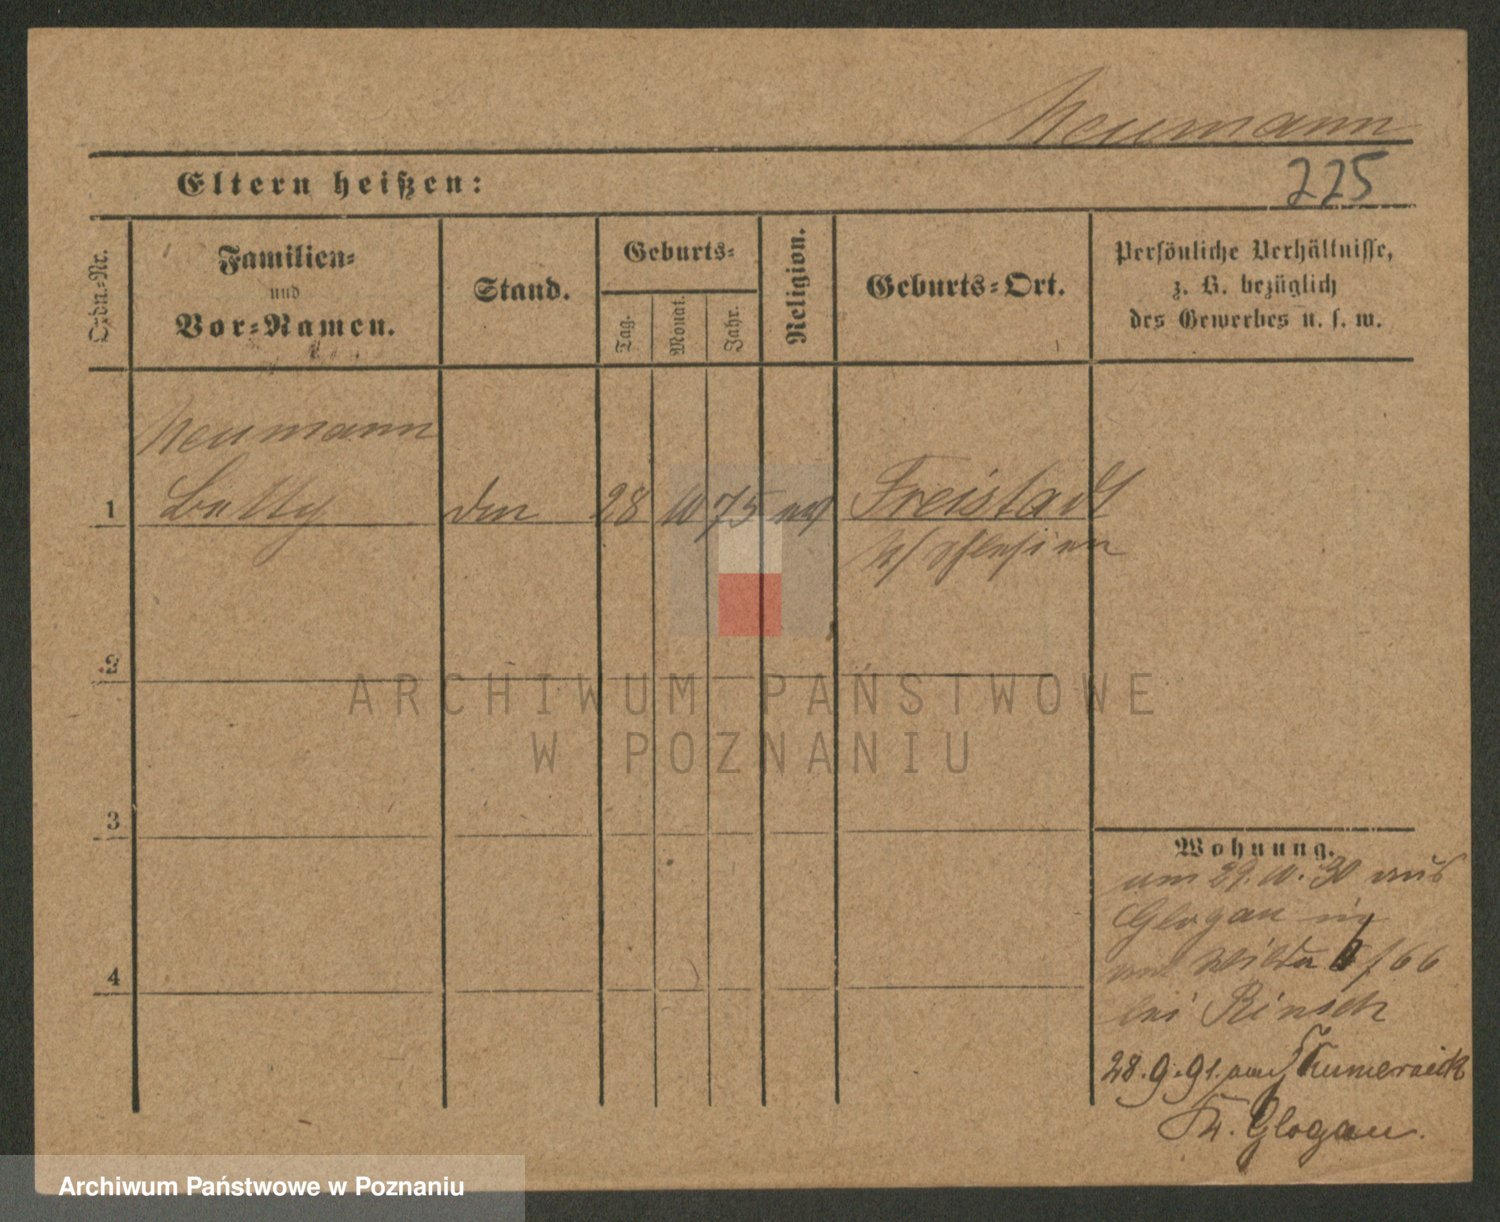 Neumann
225
Eltern heißen:
Ordn.-Nr.
Familien-
und
Vor-Namen.
Stand.
Geburts-
Tag.
Monat.
Jahr.
Religion.
Geburts-Ort.
Persönliche Verhältnisse,
z. B. bezüglich
des Gewerbes u. s. w.
Neumann
1 Betty 28 10 75 ev Freistadt
N/Schlesien
2
3
4
ARCHIWUM PAŃSTWOWE
W POZNANIU
Wohnung.
am 29.10.90 aus
Glogau in
Wilda 66
bei Rinsch
28.9.91. nach
Kr. Glogau.
Archiwum Państwowe w Poznaniu